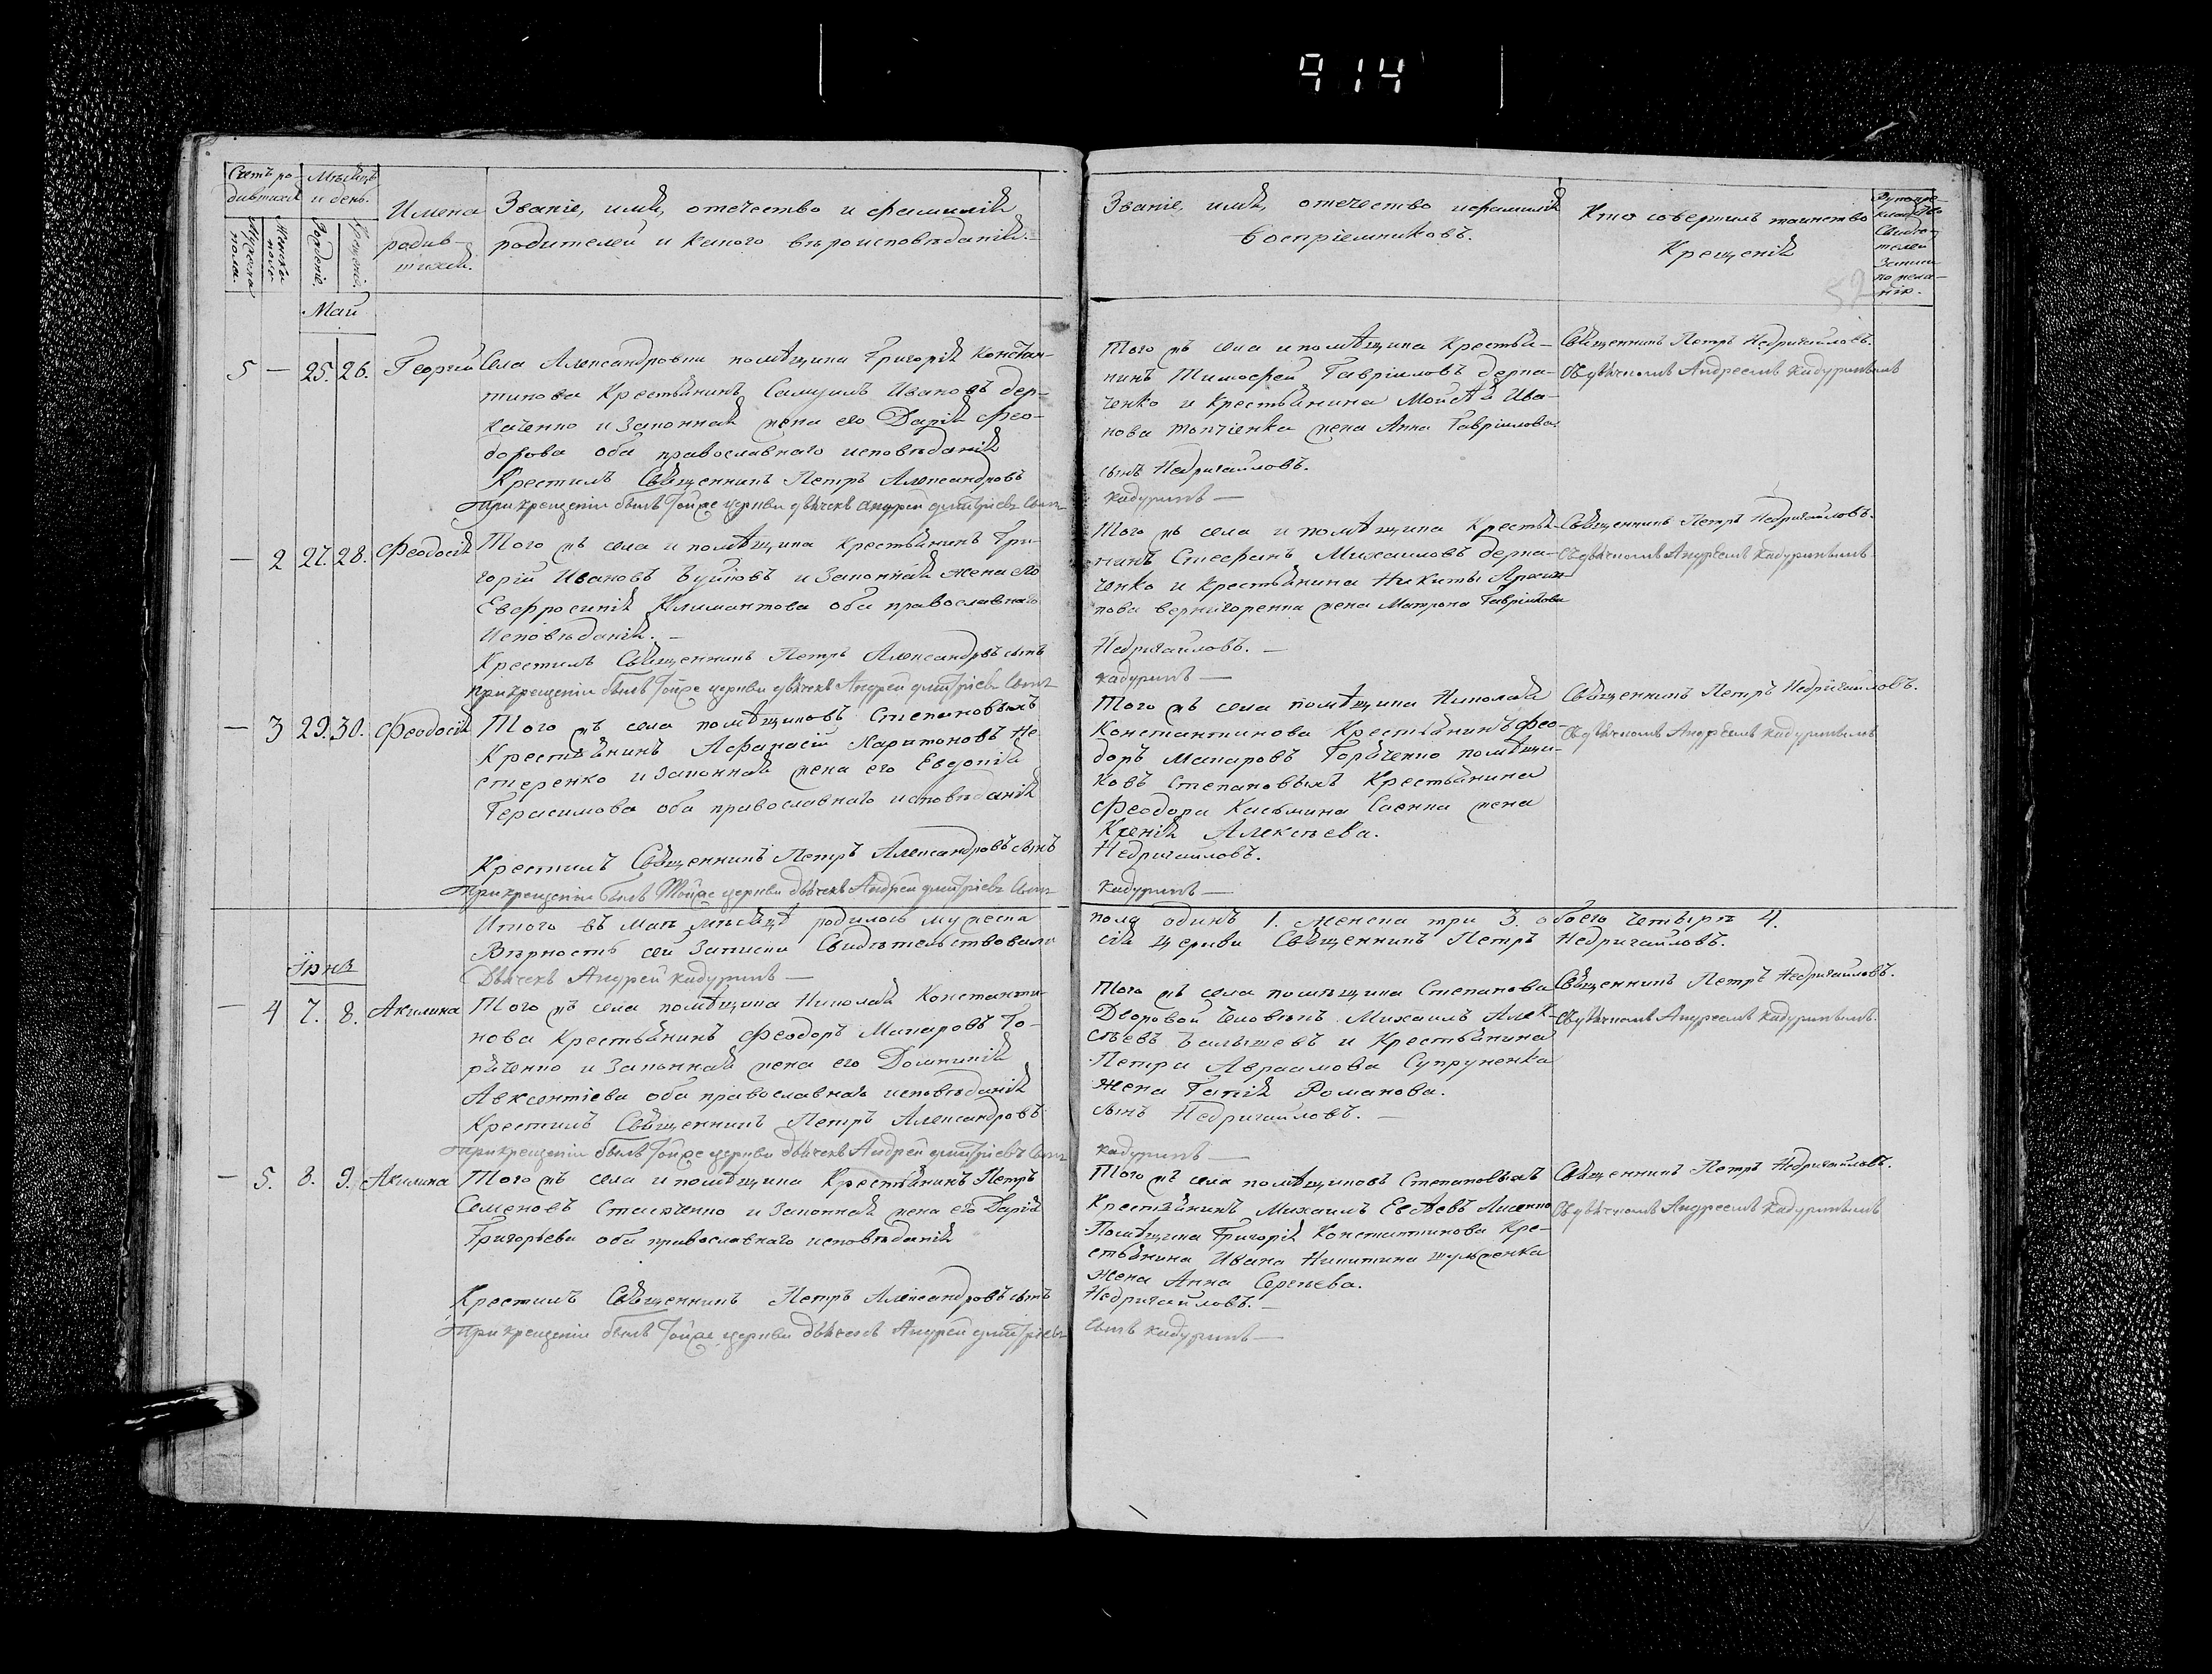 914
Счетъ ро-
дившихся
Мужеска
пола.
Женска
пола
Мѣсяцъ
и день.
Рожденіе.
Крещенія.
Имена
родив-
шихся.
Званіе, имя, отечество и фамилія
родителей и какого вѣроисповѣданія.
Званіе, имя, отечество и фамилія
воспріемниковъ.
Кто совершилъ таинство
Крещенія
Рукопри-
кладство
Свидѣ-
телей
Записи
по жела-
нію.
Май
5 — 25. 26. Георгій
Села Александровки помѣщика Григорія Констан-
тинова Крестьянинъ Самуилъ Ивановъ дер-
каченко и Законная жена его Дарія Фео-
дорова оба православнаго исповѣданія
Крестилъ Священникъ Петръ Александровъ
При крещеніи былъ Тойже церкви дьячекъ Андрей Дмитріевъ сынъ
Того жъ села и помѣщика Крестья-
нинъ Тимофей Гавріиловъ дерка-
ченко и Крестьянина Мойсѣя Ива-
нова жена Анна Гавріилова.
сынъ Недригайловъ.
Кадуринъ —
Священникъ Петръ Недригайловъ.
Съ дьячкомъ Андреемъ Кадуринымъ
— 2 27. 28. Феодосія
Того жъ села и помѣщика Крестьянинъ Гри-
горій Ивановъ Буйновъ и Законная жена его
Евфросинія Климантова оба православнаго
Исповѣданія. —
Крестилъ Священникъ Петръ Александровъ сынъ
При крещеніи былъ Тойже церкви дьячекъ Андрей Дмитріевъ сынъ
Того жъ села и помѣщика Крестья-
нинъ Стефанъ Михаиловъ дерка-
ченко и Крестьянина Никиты
жена Матрона Гавріилова
Недригайловъ. —
Кадуринъ —
Священникъ Петръ Недригайловъ.
Съ дьячкомъ Андреемъ Кадуринымъ
— 3 29. 30. Феодосія
Того жъ села помѣщиковъ Степановыхъ
Крестьянинъ Афанасій Харитоновъ Не-
стеренко и Законная жена его Евдокія
Герасимова оба православнаго исповѣданія
Крестилъ Священникъ Петръ Александровъ сынъ
При крещеніи былъ Тойже церкви дьячекъ Андрей Дмитріевъ сынъ
Того жъ села помѣщика Николая
Константинова Крестьянинъ Фео-
доръ Макаровъ Горяченко помѣщи-
ковъ Степановыхъ Крестьянина
Феодора Касьмина Саенка жена
Ксенія Алексѣева.
Недригайловъ.
Кадуринъ —
Священникъ Петръ Недригайловъ.
Съ дьячкомъ Андреемъ Кадуринымъ
Итого въ Маѣ мѣсяцѣ родилось мужеска
пола одинъ 1. женска три 3. обоего четыре 4.
Вѣрность сей Записки Свидѣтельствовали
сія церкви Священникъ Петръ Недригайловъ.
Дьячекъ Андрей Кадуринъ —
Іюнь
— 4 7. 8. Акилина
Того жъ села помѣщика Николая Константи-
нова Крестьянинъ Феодоръ Макаровъ Го-
ряченко и Законная жена его Домникія
Авксентіева оба православнаго исповѣданія
Крестилъ Священникъ Петръ Александровъ
При крещеніи былъ Тойже церкви дьячекъ Андрей Дмитріевъ сынъ
Того жъ села помѣщика Степанова
Дворовой человѣкъ Михаилъ Алек-
сѣевъ Балышевъ и Крестьянина
Петра Авраамова Супруненка
жена Гапія Романова.
сынъ Недригайловъ. —
Кадуринъ —
Священникъ Петръ Недригайловъ.
Съ дьячкомъ Андреемъ Кадуринымъ.
— 5. 8. 9. Акилина
Того жъ села и помѣщика Крестьянинъ Петръ
Семеновъ и Законная жена его Дарія
Григорьева оба православнаго исповѣданія
Крестилъ Священникъ Петръ Александровъ сынъ
При крещеніи былъ Тойже церкви дьячекъ Андрей Дмитріевъ
Того жъ села помѣщиковъ Степановыхъ
Крестьянинъ Михаилъ Лисенко
Помѣщика Григорія Константинова Кре-
стьянина Ивана Никитина
жена Анна Сергѣева.
Недригайловъ. —
сынъ Кадуринъ —
Священникъ Петръ Недригайловъ.
Съ дьячкомъ Андреемъ Кадуринымъ